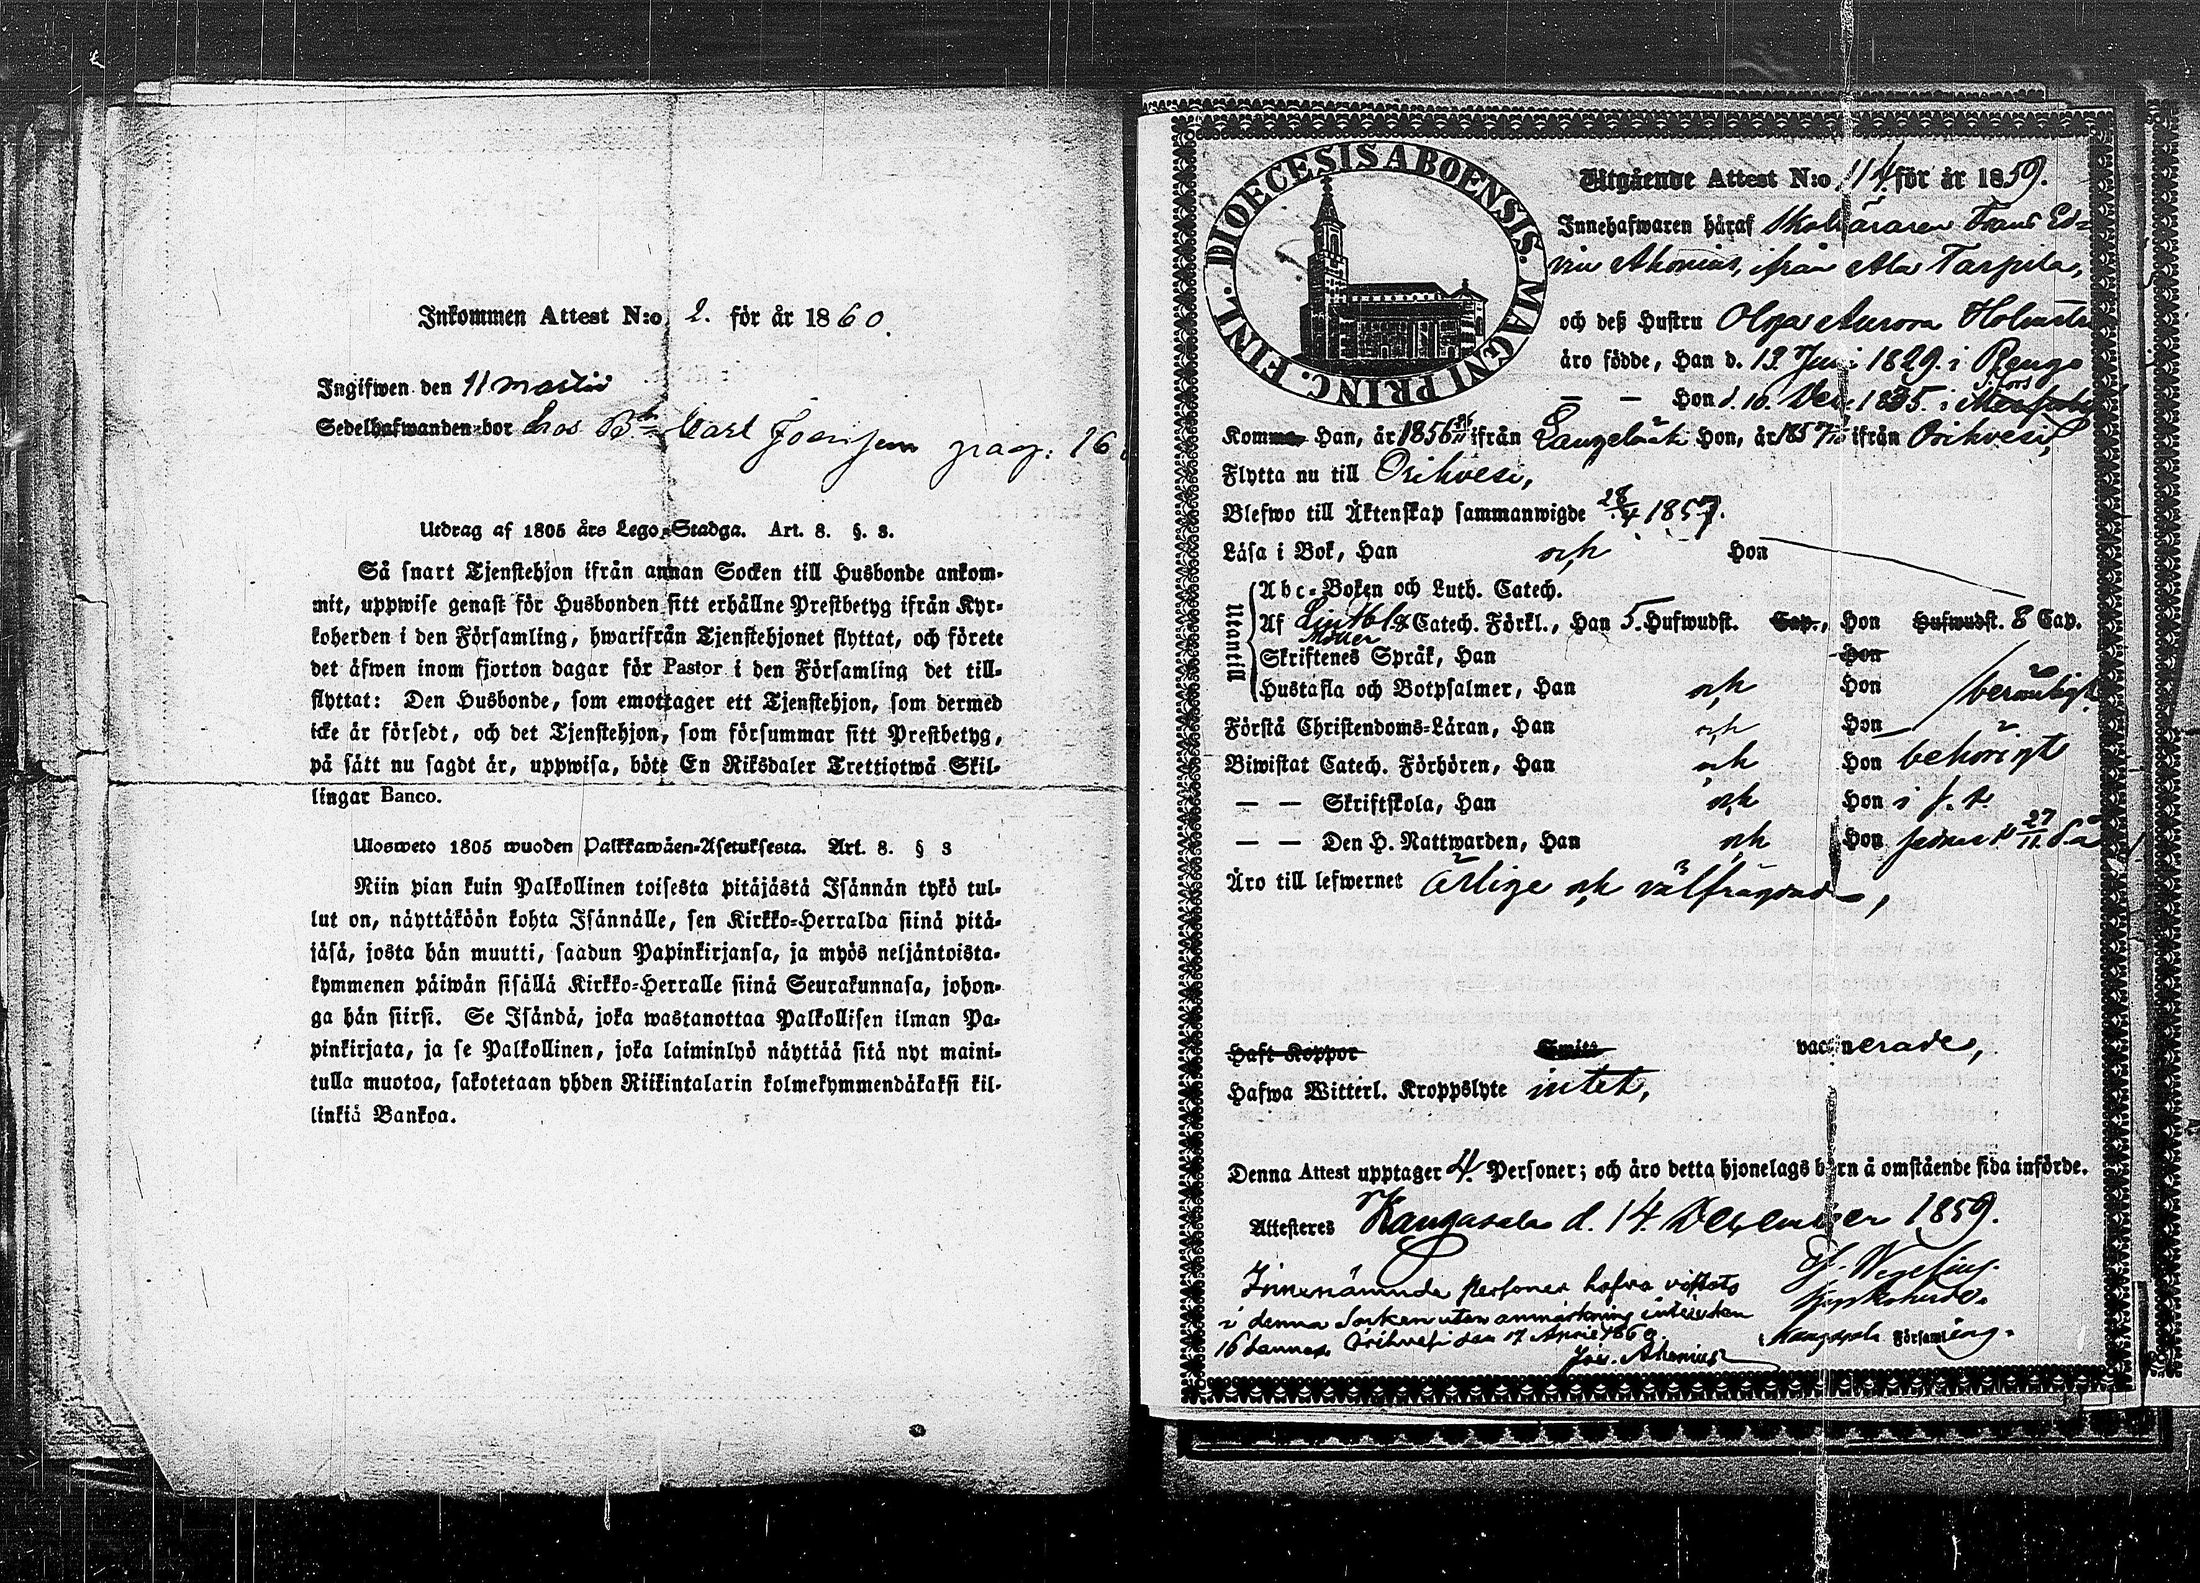 Inkommen Attest N:o 2. för år 1860.
Ingifwen den 11 martii
Sedelhafwanden bor hos Carl pag: 16
Utdrag af 1805 års Lego-Stadga. Art. 8. §. 3.
Så snart Tjenstehjon ifrån annan Socken till Husbonde ankom-
mit, uppwise genast för Husbonden sitt erhållne Prestbetyg ifrån Kyr-
koherden i den Församling, hwarifrån Tjenstehjonet flyttat, och förete
det äfwen inom fjorton dagar för Pastor i den Församling det till-
flyttat: Den Husbonde, som emottager ett Tjenstehjon, som dermed
icke är försedt, och det Tjenstehjon, som försummar sitt Prestbetyg,
på sätt nu sagdt är, uppwisa, böte En Riksdaler Trettiotwå Skil-
lingar Banco.
Ulosweto 1805 wuoden Palkkawäen-Asetuksesta. Art. 8. § 3
Niin pian kuin Palkollinen toisesta pitäjästä Isännän tykö tul-
lut on, näyttäköön kohta Isännälle, sen Kirkko-Herralda siinä pitä-
jäsä, josta hän muutti, saadun Papinkirjansa, ja myös neljäntoista-
kymmenen päiwän sisällä Kirkko-Herralle siinä Seurakunnasa, johon-
ga hän siirsi. Se Isändä, joka wastanottaa Palkollisen ilman Pa-
pinkirjata, ja se Palkollinen, joka laiminlyö näyttää sitä nyt maini-
tulla muotoa, sakotetaan yhden Riikintalarin kolmekymmendäkaksi kil-
linkiä Bankoa.
DIOECESIS ABOENSIS. MAGNI PRINC. FINL.
Utgående Attest N:o 114. för år 1859.
Innehafwaren häraf Skolläraren Frans Ed-
vin Akonius, ifrån Ala Tarpila,
och deß Hustru Olga Aurora
äro födde, Han d. 13. Juni 1829. i Rengo
— — Hon d. 10. Dec. 1835. i
Komma Han, år 1856 ifrån Längelmäki Hon, år 1857 ifrån Orihvesi,
Flytta nu till Orihvesi,
Blefwo till Äktenskap sammanwigde 28/4 1857.
Läsa i Bok, Han och Hon
Utantill
Abc-Boken och Luth. Catech.
Af Catech. Förkl., Han 5. Hufwudst. Cap., Hon Hufwudst. 8 Cap.
Skriftenes Språk, Han Hon
Hustafla och Botpsalmer, Han och Hon berömligt
Förstå Christendoms-Läran, Han och Hon
Biwistat Catech. Förhören, Han och Hon behörigt
— — Skriftskola, Han och Hon i
— — Den H. Nattwarden, Han och Hon 27/11
Äro till lefwernet ärlige och välfrägdade,
Haft Koppor vaccinerade,
Hafwa Witterl. Kroppslyte intet,
Denna Attest upptager 4. Personer; och äro detta hjonelags barn å omstående sida införde.
Attesteres Kangasala d. 14. December 1859.
Kyrkoherde.
Kangasala Församling.
Innenämnde personer hafva vistats
i denna Socken utan anmärkning
Orihvesi den 17 April 1860.
Akonius